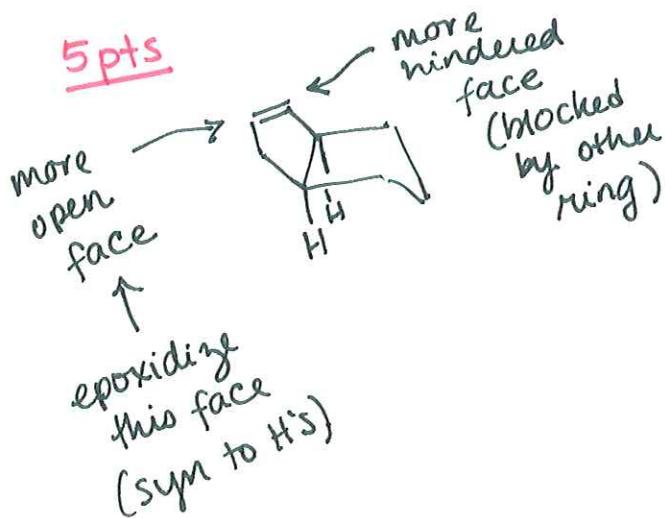 5 pts
more
hindered
face
(blocked
by other
ring)
more
open
face
H
H
epoxidize
this face
(syn to H's)